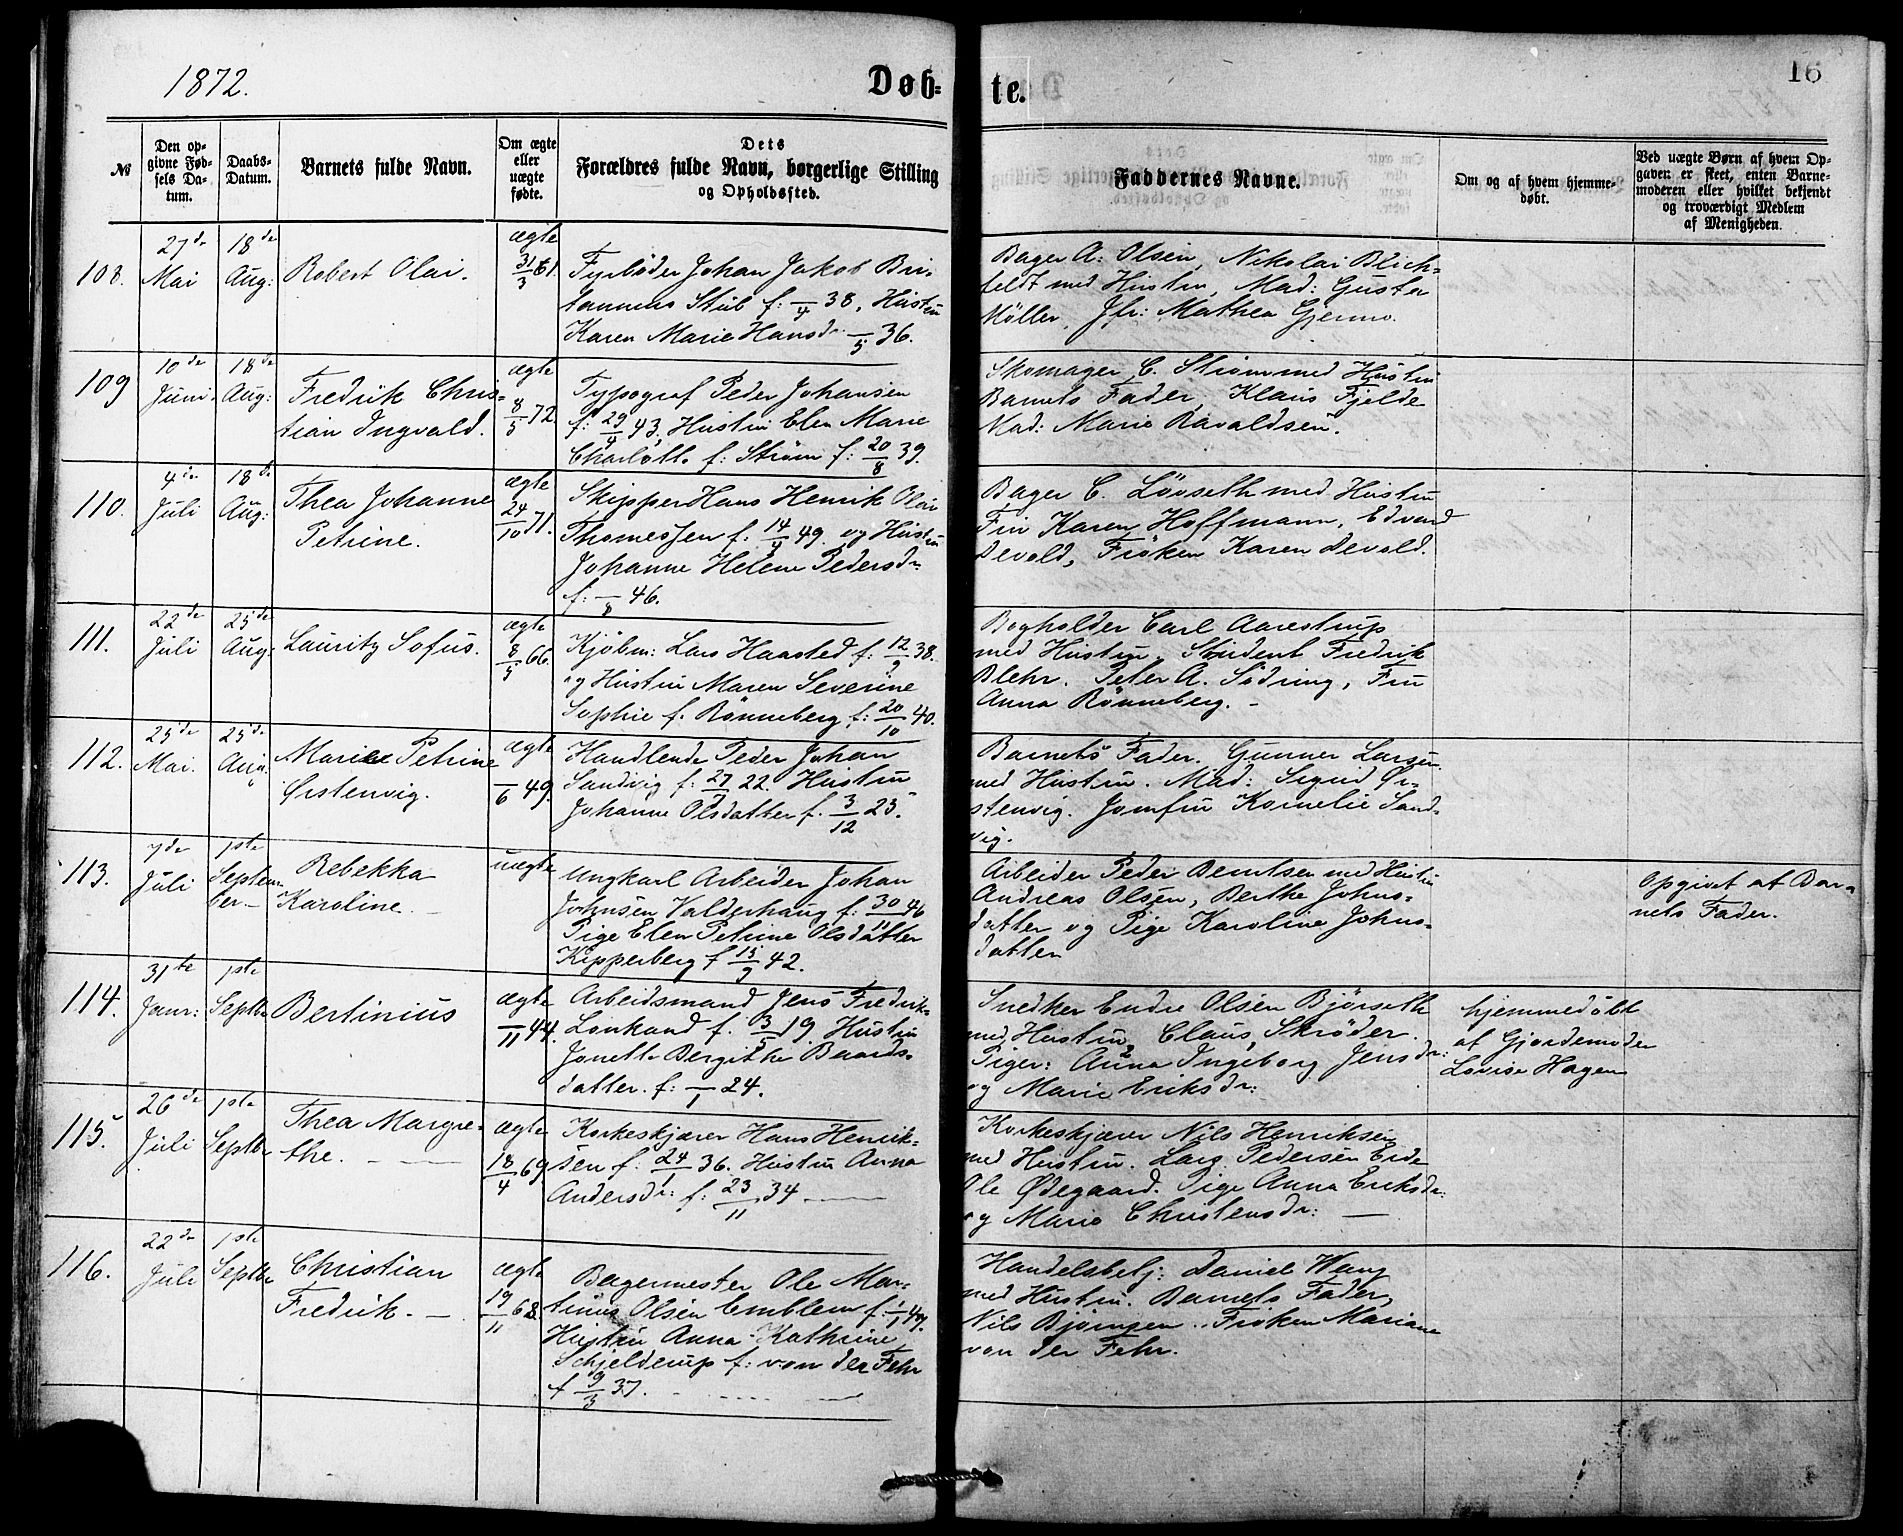 1872.
Døbte.
16
№
Den opgivne Fødsels Datum.
Daabs-Datum.
Barnets fulde Navn.
Om ægte eller uægte fødte.
Dets Forældres fulde Navn, borgerlige Stilling og Opholdssted.
Faddernes Navne.
Om og af hvem hjemmedøbt.
Ved uægte Børn af hvem Opgaven er skeet, enten Barnemoderen eller hvilket bekjendt og troværdigt Medlem af Menigheden.
108.
27de Mai
18de Aug:
Robert Olai.
ægte 31/3 61.
Fyrbøder Johan Jakob Bri-
tannus Stub f: –/4 38, Hustru
Karen Marie Hansdr. –/5 36.
Bager A. Olsen, Nikolai Blich-
feldt med Hustru, Mad: Gusta
Møller, Jfr: Mathea Gjermo.
109
10de Juni.
18de Aug:
Fredrik Chris-
tian Ingvald.
ægte 8/5 72.
Typograf Peder Johansen
f: 29/4 43, Hustru Elen Marie
Charlotte f: Strøm f: 20/8 39.
Skomager C. Strøm med Hustru
Barnets Fader, Klaus Fjelde
Mad: Marie Ravaldsen.
110.
4de Juli
18de Aug:
Thea Johanne
Petrine.
ægte 24/10 71.
Skipper Hans Henrik Olai
Thomessen f: 14/4 49. og Hustru
Johanne Helene Pedersdr.
f: –/8 46.
Bager C. Løvseth med Hustru
Fru Karen Hoffmann, Edvard
Devold, Frøken Karen Devold.
111.
22de Juli
25de Aug:
Lauritz Sofus.
ægte 8/5 66.
Kjøbm: Lars Haasted f: 12/9 38.
og Hustru Maren Severine
Sophie f. Rønneberg f: 20/10 40.
Bogholder Carl Aarestrup
med Hustru. Student Fredrik
Blehr. Peter A. Södring, Fru
Anna Rønneberg. -
112.
25de Mai.
25de Aug
Marie Petrine
Ørstenvig.
ægte –/6 49.
Handlende Peder Johan
Sandvig f: 27/9 22. Hustru
Johanne Olsdatter f. 3/12 25.
Barnets Fader. Gunner Larsen
med Hustru. Mad: Sigrid Ør-
stenvig. Jomfru Kornelie Sand-
vig.
113.
7de Juli
1ste Septem-
ber –
Rebekka
Karoline. –
uægte
Ungkarl Arbeider Johan
Johnsen Valderhaug f: 30/11 46
Pige Elen Petrine Olsdatter
Kipperberg f 15/9 42.
Arbeider Peder Berntsen med Hustru
Andreas Olsen, Berthe Johns-
datter og Pige Karoline Johns-
datter
Opgivet af Bar-
nets Fader.
114.
31te Janr:
1ste Septbr
Bertinius
ægte –/11 44.
Arbeidsmand Jens Fredrik
f. 3/5 19 Hustru
Jonette Bergithe Baards-
datter. f: –/1 24.
Snedker Endre Olsen Bjørseth
med Hustru, Claus Skrøder.
Piger: Anna Ingeborg Jensdr:
og Marie Eriksdr:
hjemmedøbt
af Gjordemoder
Lovise Hagen
115.
26de Juli
1ste Septbr
Thea Margre-
the. – –
ægte 18/4 69
Korkeskjærer Hans Henrik-
sen f. 24/1 36. Hustru Anna
Andersdr: f: 23/11 34 –
Korkeskjærer Nils Henriksen
med Hustru. Lars Pedersen Eide
Ole Ødegaard. Pige Anna Eriksdr:
og Marie Christensdr: –
116.
22de Juli
1ste Septbr
Christian
Fredrik. –
ægte 19/11 68.
Bagermester Ole Mar-
tinus Olsen Emblem f: –/1 49.
Hustru Anna Kathrine
Schjelderup f: von der Fehr
f 9/3 37.
Handelsbetj: Daniel Wang
med Hustru. Barnets Fader,
Nils Bjørnsen. Frøken Mariane
von der Fehr.